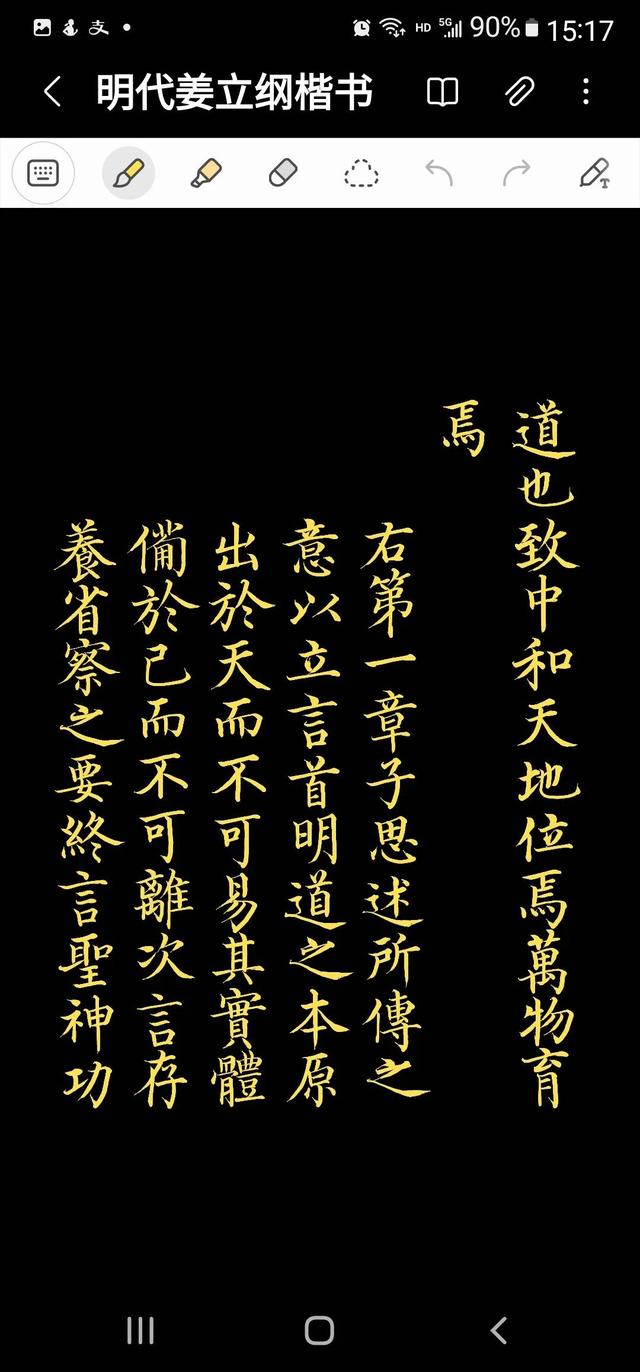 HD 5G 90% 15:17
明代姜立纲楷书
道也致中和天地位焉萬物育
焉
右第一章子思述所傳之
意以立言首明道之本原
出於天而不可易其實體
備於已而不可離次言存
養省察之要終言聖神功